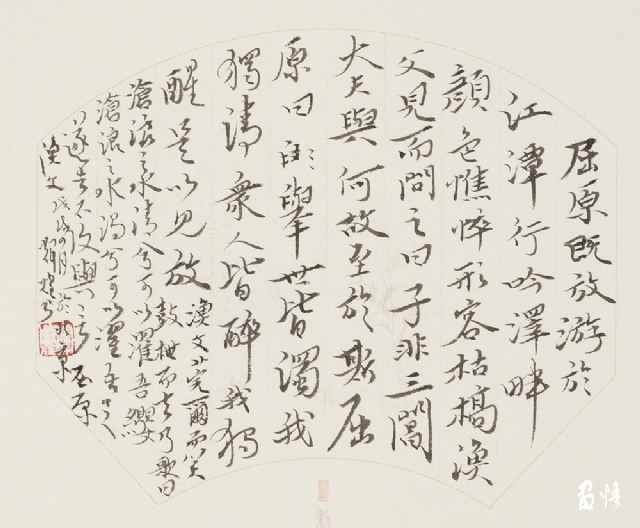 屈原既放游於
江潭行吟澤畔
顏色憔悴形容枯槁漁
父見而問之曰子非三閭
大夫與何故至於斯屈
原曰舉世皆濁我
獨清衆人皆醉我獨
醒是以見放
漁父莞爾而笑
鼓枻而去乃歌曰
滄浪之水清兮可以濯吾纓
滄浪之水濁兮可以濯吾足
遂去不復與言 屈原
漁父 戊戌四月於北京